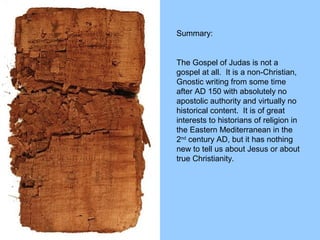 Summary:
The Gospel of Judas is not a
gospel at all.  It is a non-Christian,
Gnostic writing from some time
after AD 150 with absolutely no
apostolic authority and virtually no
historical content.  It is of great
interests to historians of religion in
the Eastern Mediterranean in the
2nd century AD, but it has nothing
new to tell us about Jesus or about
true Christianity.